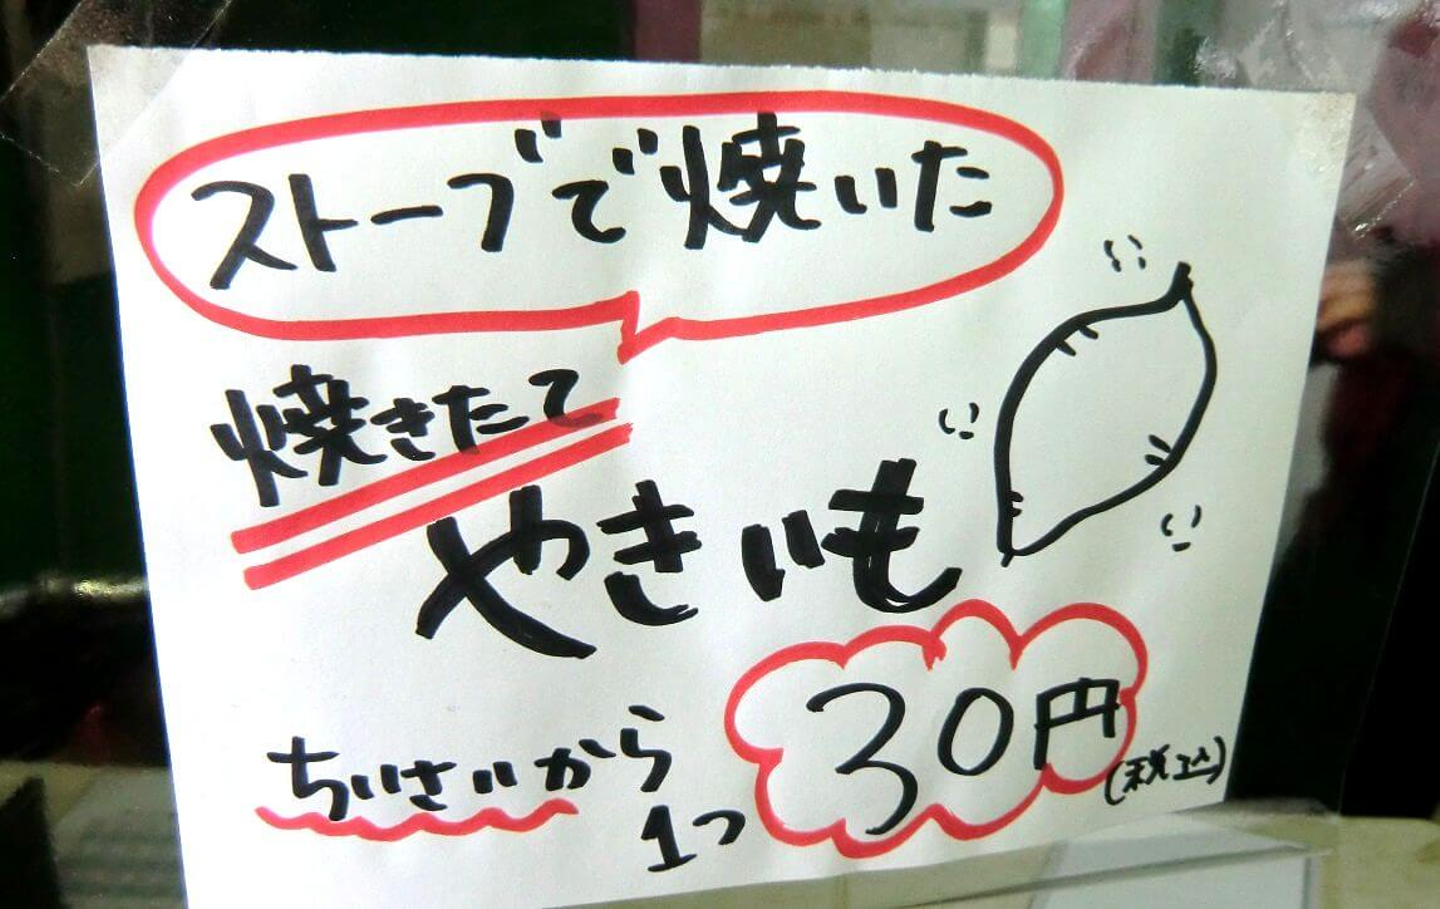 ストーブで焼いた
焼きたて
やきいも
ちいさいから
1つ 30円
(税込)